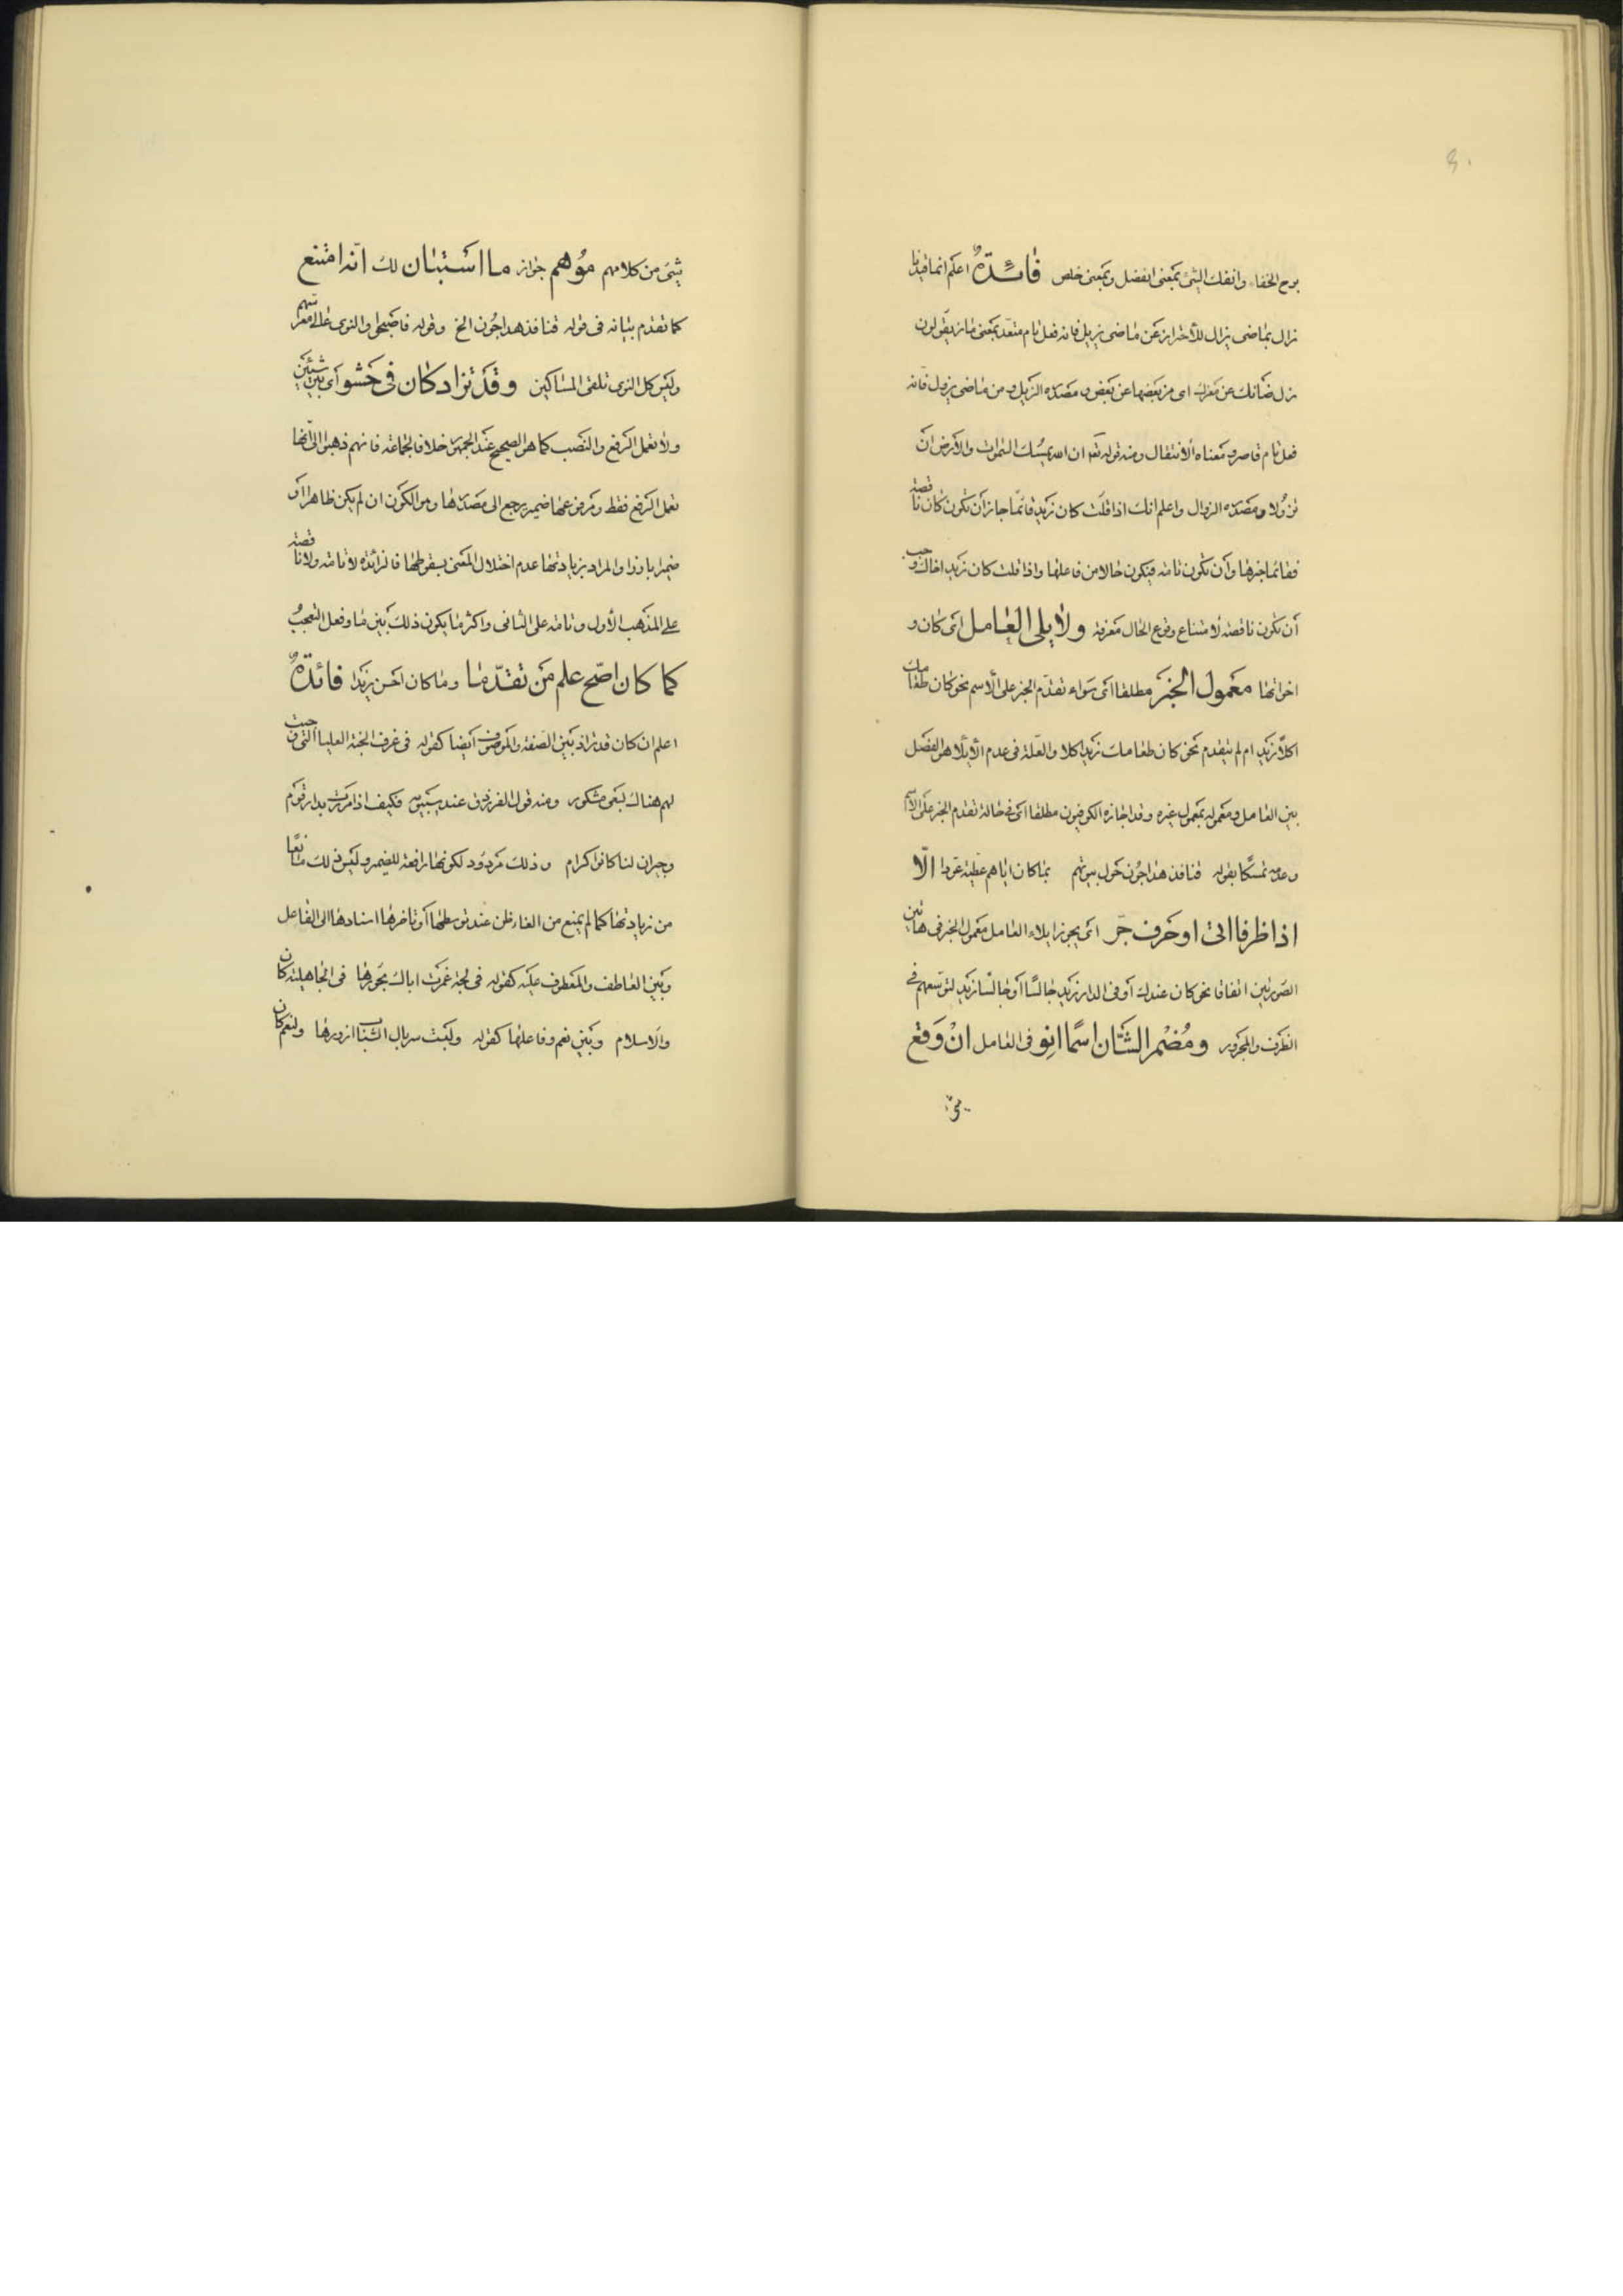 برح الخفاء وانفك الشئ بمعنى انفصل وبمعنى خلص فائدة اعلم انما قيدنا
زال بماضى يزال للأحتراز عن ماضى يزيل فانه فعل تام متعد بمعنى ماز يقولون
زل ضأنك عن معزك اى مز بعضها عن بعض و مصدره الزيل و من ماضى يزول فانه
فعل تام قاصر و معناه الأنتقال ومنه قوله تعه ان الله يمسك السموات والأرض ان
تزولا و مصدره الزوال واعلم انك اذا قلت كان زيد قائما جاز أن تكون كان ناقصة
فقائما خبرها وأن تكون تامة فيكون حالا من فاعلها واذا قلت كان زيد اخاك وجب
أن تكون ناقصة لامتناع وقوع الحال معرفة ولا يلى العامل اى كان و
اخواتها معمول الخبر مطلقا اى سواء تقدم الخبر على الأسم نحو كان طعامك
اكلا زيد ام لم يتقدم نحو كان طعامك زيد اكلا والعلة فى عدم الأيلاء هو الفصل
بين العامل ومعموله بمعمول غيره وقد اجازه الكوفيون مطلقا اى فى حالة تقدم الخبر على الأسم
وعدمه تمسكا بقوله قنافذ هداجون حول بيوتهم بما كان اياهم عطية عودا الّا
اذا ظرفا اتى او حرف جرّ اى يجوز ايلاء العامل معمول الخبر فى هاتين
الصورتين اتفاقا نحو كان عندك أو فى الدار زيد جالسا أو جالسا زيد لتوسعهم فى
الظرف والمجرور ومُضمر الشّان اسمًا انو فى العامل انْ وَقع
شئ
شئ من كلامهم مُوهم جواز ما استبان لك انه امتنع
كما تقدم بيانه فى قوله قنافذ هداجون الخ وقوله فاصبحوا والنوى عالى معرسهم
وليس كل النوى تلقى المساكين وقد تزاد كان فى حشو أى بين شيئين
ولا تعمل الرفع والنصب كما هو الصحيح عند الجمهور خلافا لجماعة فانهم ذهبوا الى أنها
تعمل الرفع فقط ومرفوعها ضمير يرجع الى مصدرها وهو الكون ان لم يكن ظاهرا أو
ضميرا بارزا والمراد بزيادتها عدم اختلال المعنى بسقوطها فالزائدة لا تامة ولا ناقصة
على المذهب الأول وتامة على الثانى واكثر ما يكون ذلك بين ما وفعل التعجب
كما كان اصحّ علم من تقدّما وما كان احسن زيدا فائدة
اعلم ان كان قد تزاد بين الصفة والموصوف أيضا كقوله فى غرف الجنة العليا التى وجبت
لهم هناك بسعى مشكور ومنه قول الفرزدق عند سيبويه فكيف اذا مررت بدار قوم
وجيران لنا كانوا كرام وذلك مردود لكونها رافعة للضمير وليس ذلك مانعًا
من زيادتها كما لم يمنع من الغاء ظن عند توسطها أو تأخرها اسنادها الى الفاعل
وبين العاطف والمعطوف عليه كقوله فى لجة غمرت اباك بحورها فى الجاهلية كان
والاسلام وبين نعم وفاعلها كقوله ولبست سربال الشباب ازورها ولنعم كان